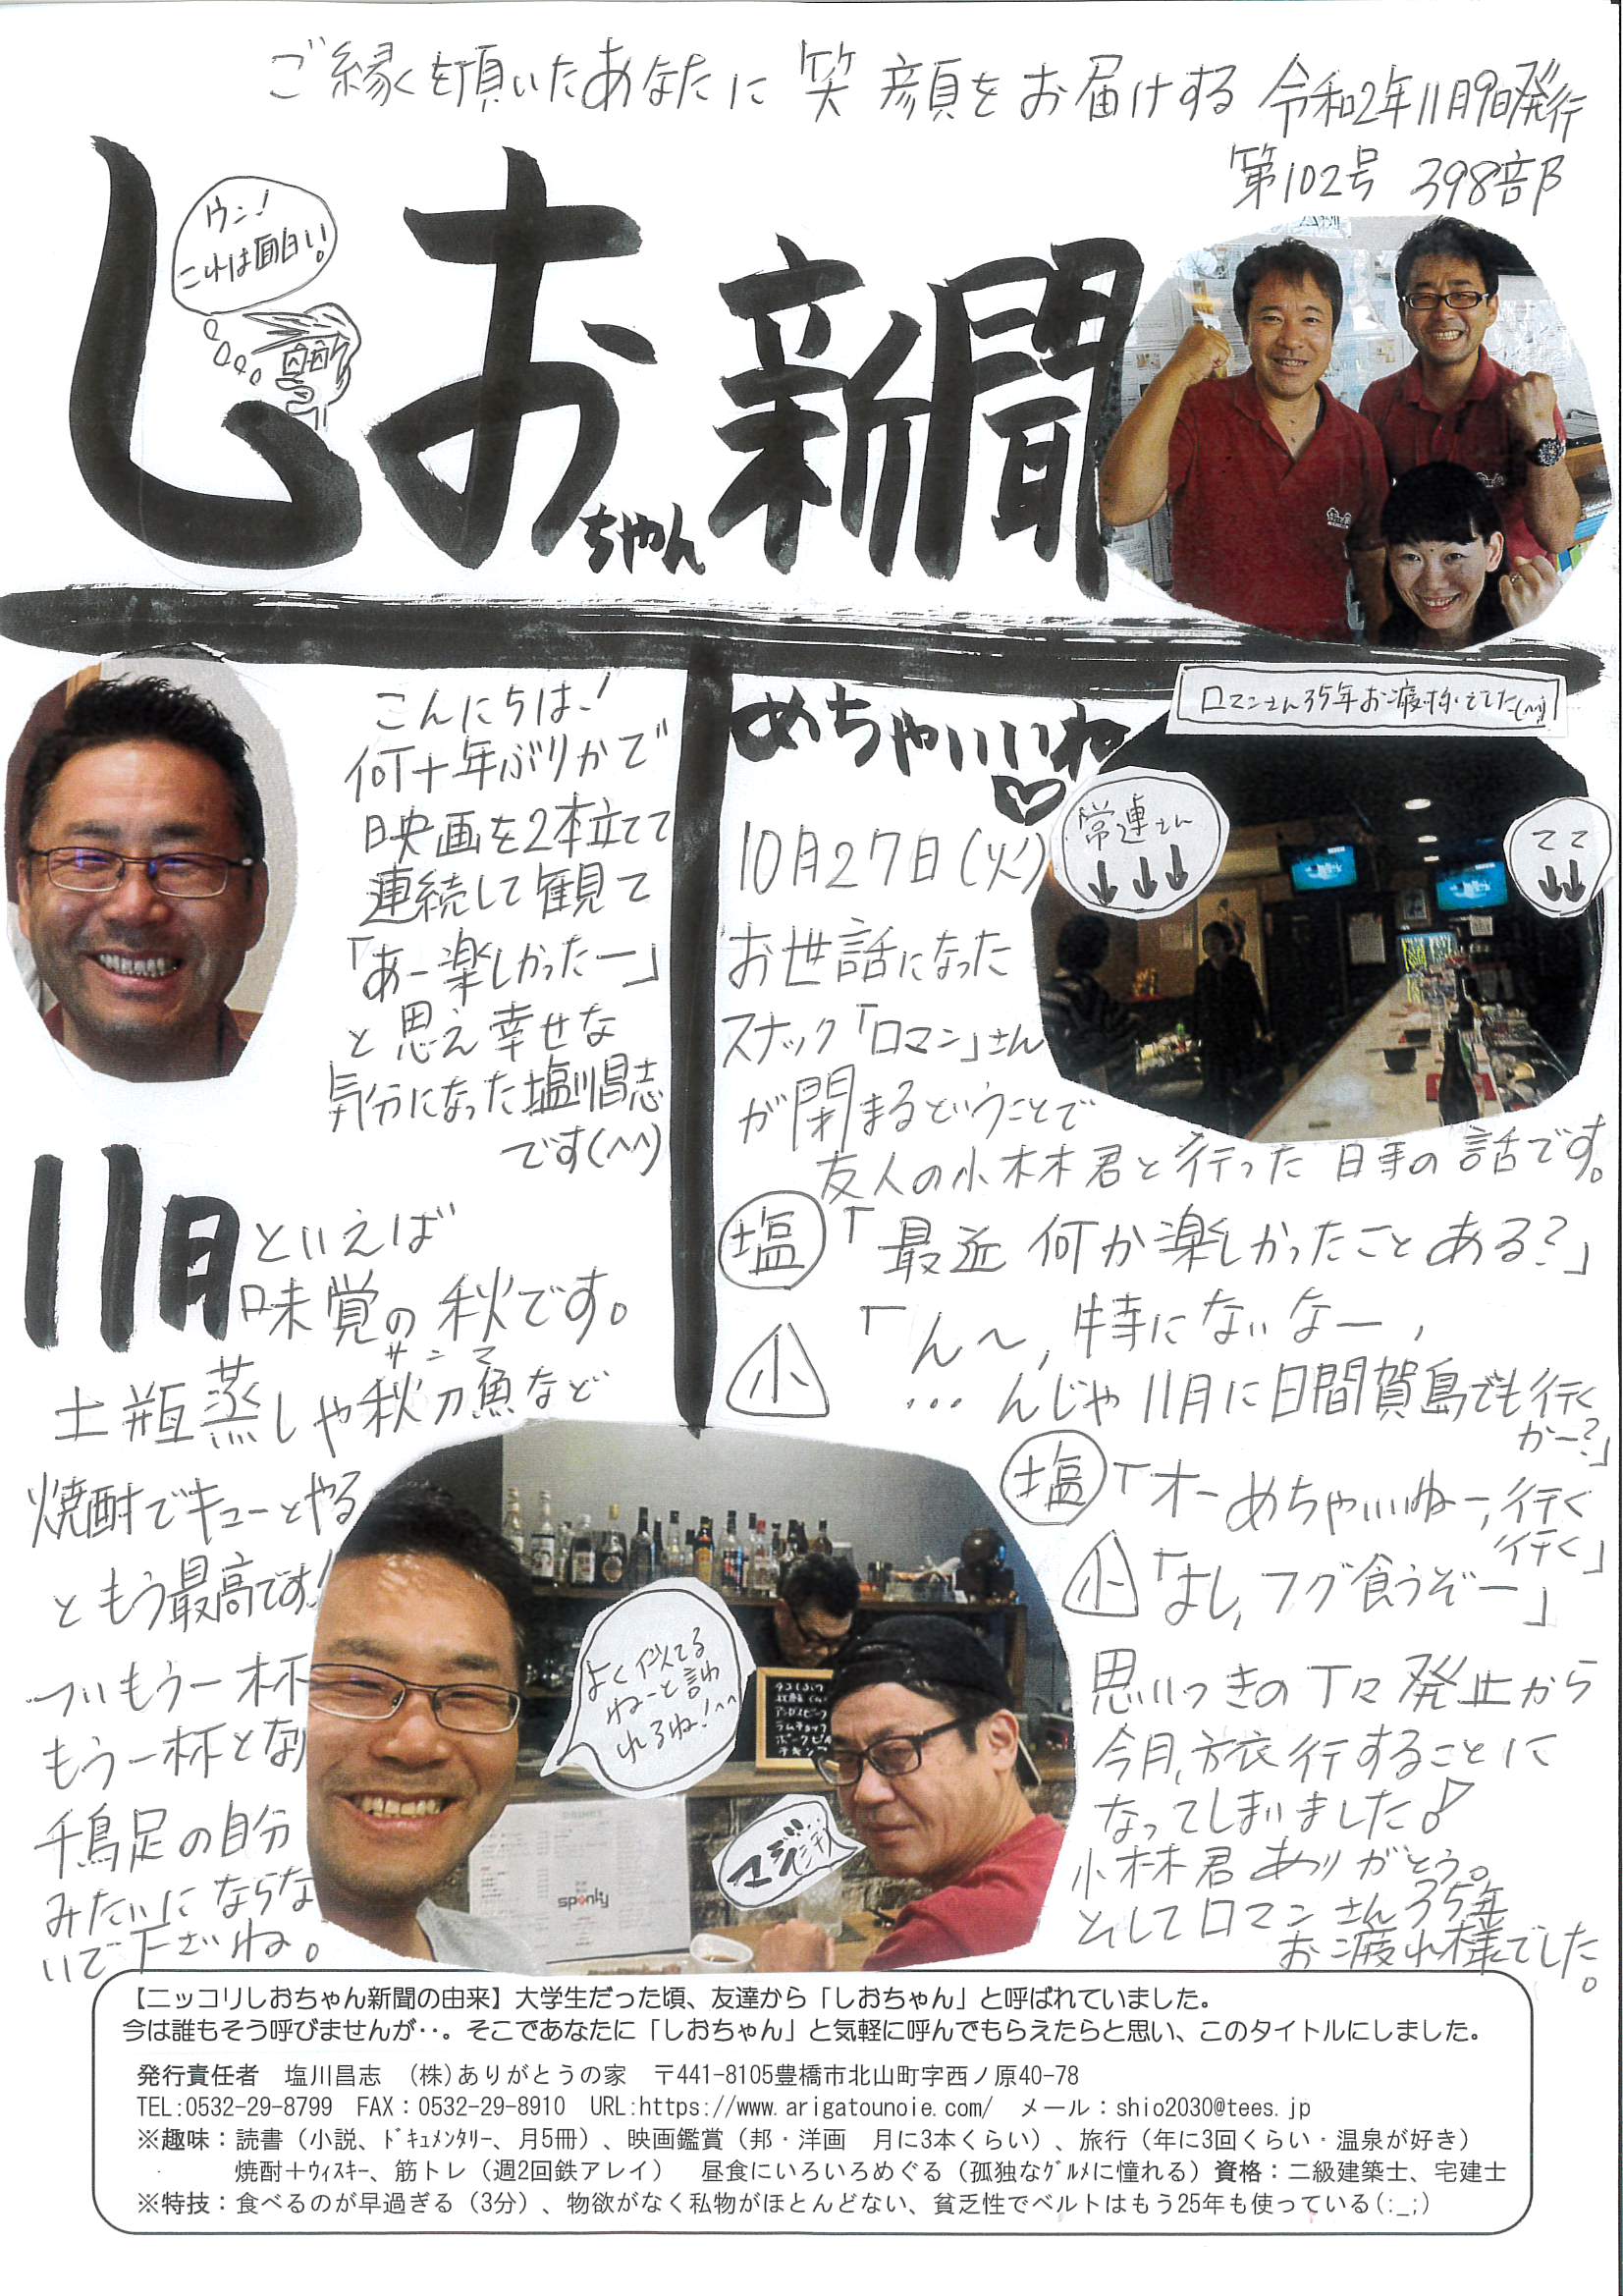 ご縁を頂いたあなたに笑顔をお届けする 令和2年11月9日発行
第102号 398部
ウン!
これは面白い。
しおちゃん新聞
こんにちは!
何十年ぶりかで
映画を2本立て
連続して観て
「あー楽しかったー」
と思え幸せな
気分になった塩川昌志
です(^^)
11月といえば
味覚の秋です。
サンマ
土瓶蒸しや秋刀魚など
焼酎でキューとやる
ともう最高です!
ついもう一杯
もう一杯とな
千鳥足の自分
みたいにならな
いで下さいね。
めちゃいいね
ロマンさん35年お疲れ様でした(^^)
常連さん
ママ
10月27日(火)
お世話になった
スナック「ロマン」さん
が閉まるということで
友人の小林君と行った時の話です。
塩「最近何か楽しかったことある?」
小「ん〜,特にないなー,
…んじゃ11月に日間賀島でも行く
かー?」
塩「オーめちゃいいねー,行く
行く」
小「よし,フグ食うぞー」
よく似てる
ねーと言わ
れるね!^^
マジ
sponky
思いつきのTロ発止から
今月,旅行することに
なってしまいました♪
小林君ありがとう。
そしてロマンさん35年
お疲れ様でした。
【ニッコリしおちゃん新聞の由来】大学生だった頃、友達から「しおちゃん」と呼ばれていました。
今は誰もそう呼びませんが‥。そこであなたに「しおちゃん」と気軽に呼んでもらえたらと思い、このタイトルにしました。
発行責任者　塩川昌志　(株)ありがとうの家　〒441-8105豊橋市北山町字西ノ原40-78
TEL:0532-29-8799　FAX：0532-29-8910　URL:https://www.arigatounoie.com/　メール：shio2030@tees.jp
※趣味：読書（小説、ﾄﾞｷｭﾒﾝﾀﾘｰ、月5冊）、映画鑑賞（邦・洋画　月に3本くらい）、旅行（年に3回くらい・温泉が好き）
焼酎＋ｳｨｽｷｰ、筋トレ（週2回鉄アレイ）　昼食にいろいろめぐる（孤独なｸﾞﾙﾒに憧れる）資格：二級建築士、宅建士
※特技：食べるのが早過ぎる（3分）、物欲がなく私物がほとんどない、貧乏性でベルトはもう25年も使っている(:_;)